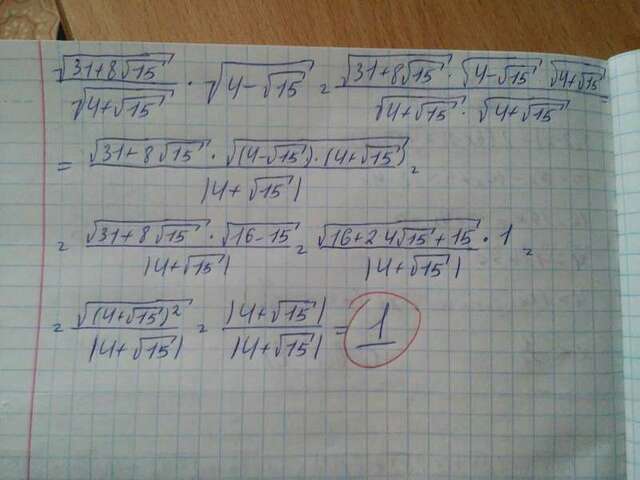 √(31+8√15) / √(4+√15) · √(4-√15) = √(31+8√15) · √(4-√15) √(4+√15) / √(4+√15) · √(4+√15)
= √(31+8√15) · √((4-√15)·(4+√15)) / |4+√15| =
= √(31+8√15) · √(16-15) / |4+√15| = √(16+2 4√15+15) · 1 / |4+√15| =
= √((4+√15)²) / |4+√15| = |4+√15| / |4+√15| = 1